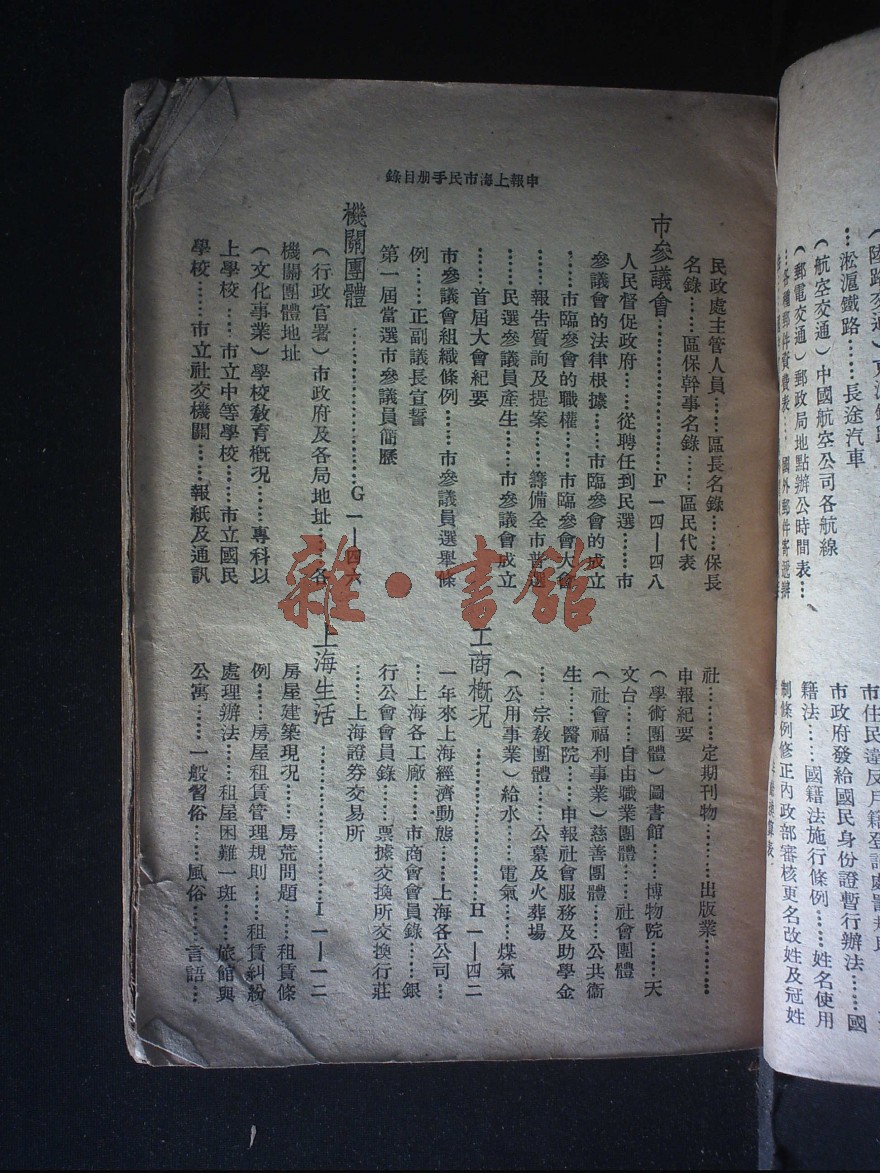 申報上海市民手册目錄
民政處主管人員……區長名錄……保長
名錄……區保幹事名錄……區民代表
市參議會………………F一四—四八
人民督促政府……從聘任到民選……市
參議會的法律根據……市臨參會的成立
……市臨參會的職權……市臨參會大會
……報告質詢及提案……籌備全市普選
……民選參議員產生……市參議會成立
……首屆大會紀要
市參議會組織條例……市參議員選舉條
例……正副議長宣誓
第一屆當選市參議員簡歷
機關團體………………G一—四六
（行政官署）市政府及各局地址……各
機關團體地址
（文化事業）學校教育概況……專科以
上學校……市立中等學校……市立國民
學校……市立社交機關……報紙及通訊
社………定期刊物………出版業………
申報紀要
（學術團體）圖書館……博物院……天
文台……自由職業團體……社會團體
（社會福利事業）慈善團體……公共衞
生……醫院……申報社會服務及助學金
……宗教團體……公墓及火葬場
（公用事業）給水……電氣……煤氣
工商概況………………H一—四二
一年來上海經濟動態……上海各公司…
…上海各工廠……市商會會員錄……銀
行公會會員錄……票據交換所交換行莊
……上海證券交易所
上海生活………………I一—一二
房屋建築現況……房荒問題……租賃條
例……房屋租賃管理規則……租賃糾紛
處理辦法……租屋困難一斑……旅館與
公寓……一般習俗……風俗……言語…
雜·書館
…淞滬鐵路………長途汽車
（航空交通）中國航空公司各航線
（郵電交通）郵政局地點辦公時間表…
市政府發給國民身份證暫行辦法……國
籍法……國籍法施行條例……姓名使用
制條例修正內政部審核更名改姓及冠姓